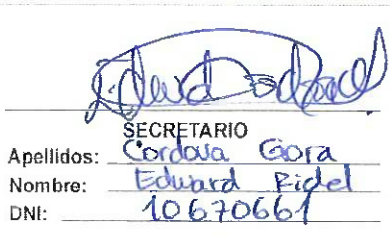 SECRETARIO
Apellidos: Cordova Gora
Nombre: Edward Ridel
DNI: 10670661